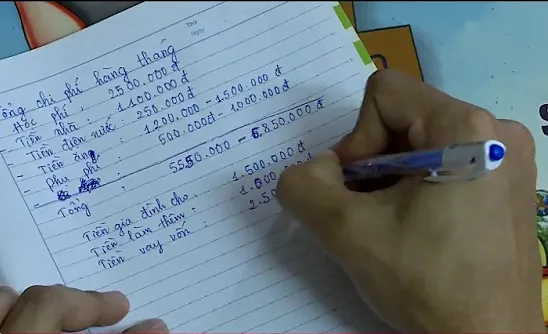 Thứ
Ngày
Tổng chi phí hàng tháng
- Học phí : 2500.000 đ
- Tiền nhà : 1.100.000 đ
- Tiền điện nước : 250.000 đ
- Tiền ăn : 1.200.000 - 1.500.000 đ
- phụ phí : 500.000đ - 1000.000 đ
- Tổng : 5550.000 - 6.850.000 đ
Tiền gia đình cho : 1.500.000 đ
Tiền làm thêm : 1.000
Tiền vay vốn : 2.50
S